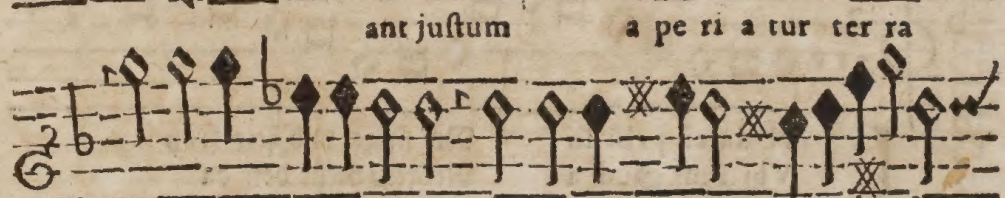 ant juſtum a pe ri a tur ter ra